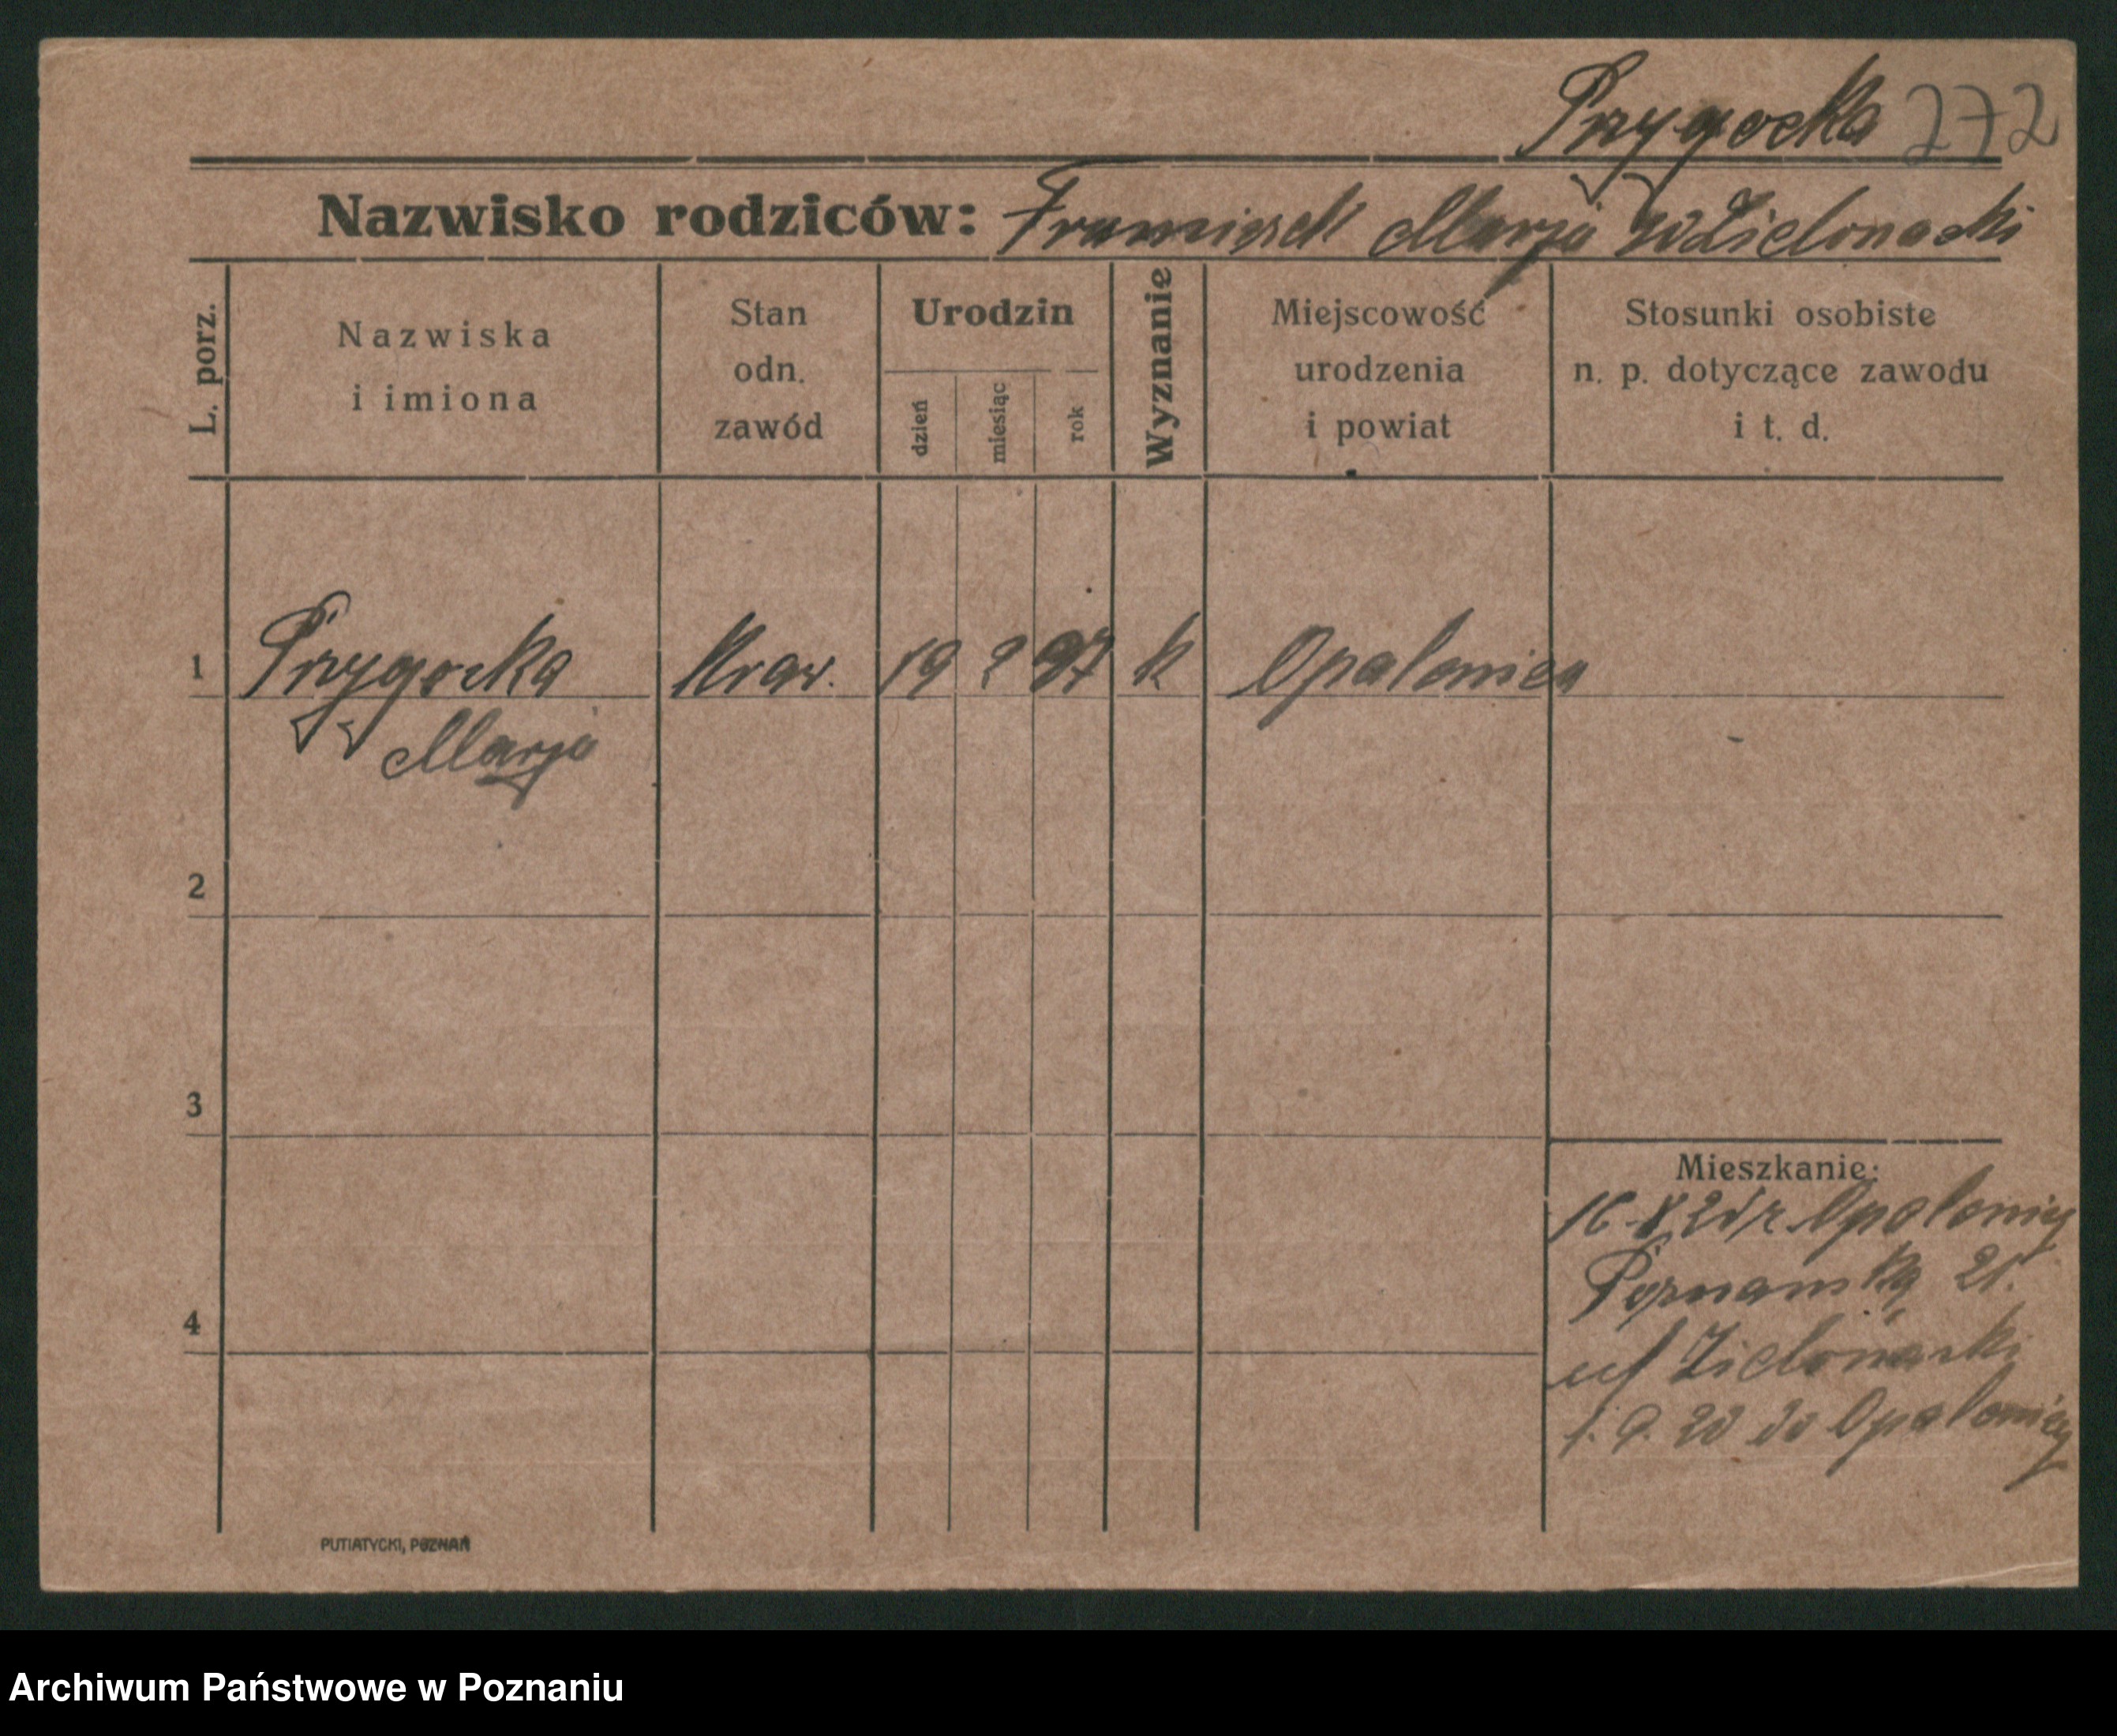 Przygocka 272
Nazwisko rodziców: Franciszek Marja Zielonacki
L. porz.
Nazwiska
i imiona
Stan
odn.
zawód
Urodzin
dzień
miesiąc
rok
Wyznanie
Miejscowość
urodzenia
i powiat
Stosunki osobiste
n. p. dotyczące zawodu
i t. d.
1 Przygocka Kraw. 19 2 97 k Opalenica
Marja
2
3
4
Mieszkanie:
Opalenicy
Poznańska 21.
Zielonacki
1. 9. do Opalenicy
PUTIATYCKI, POZNAŃ
Archiwum Państwowe w Poznaniu